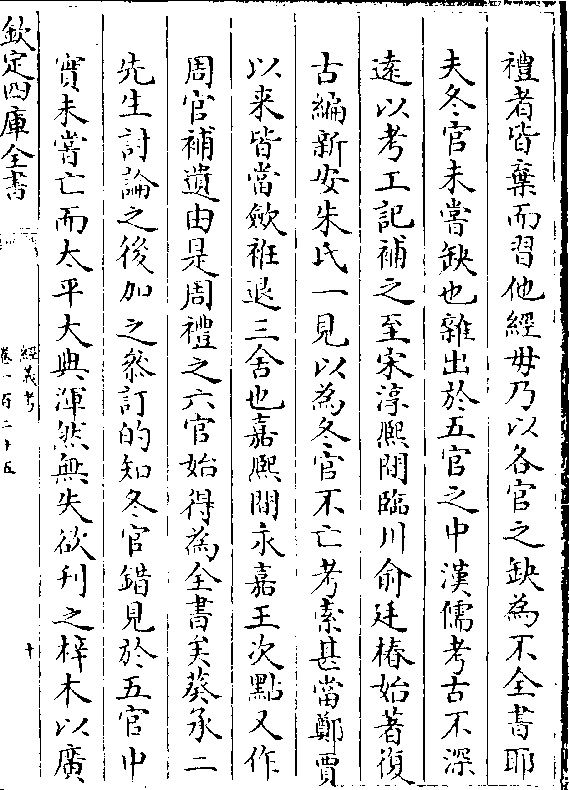 禮者皆棄而習他經毋乃以各官之缺為不全書耶
夫冬官未嘗缺也雜出於五官之中漢儒考古不深
遠以考工記補之至宋淳熙間臨川俞廷椿始著復
古編新安朱氏一見以為冬官不亡考索甚當鄭賈
以来皆當斂袵退三舍也嘉熙間永嘉王次點又作
周官補遺由是周禮之六官始得為全書矣葵承二
先生討論之後加之叅訂的知冬官錯見於五官中
實未嘗亡而太平大典渾然無失欲刋之梓木以廣
欽定四庫全書
經義考
卷一百二十五
十